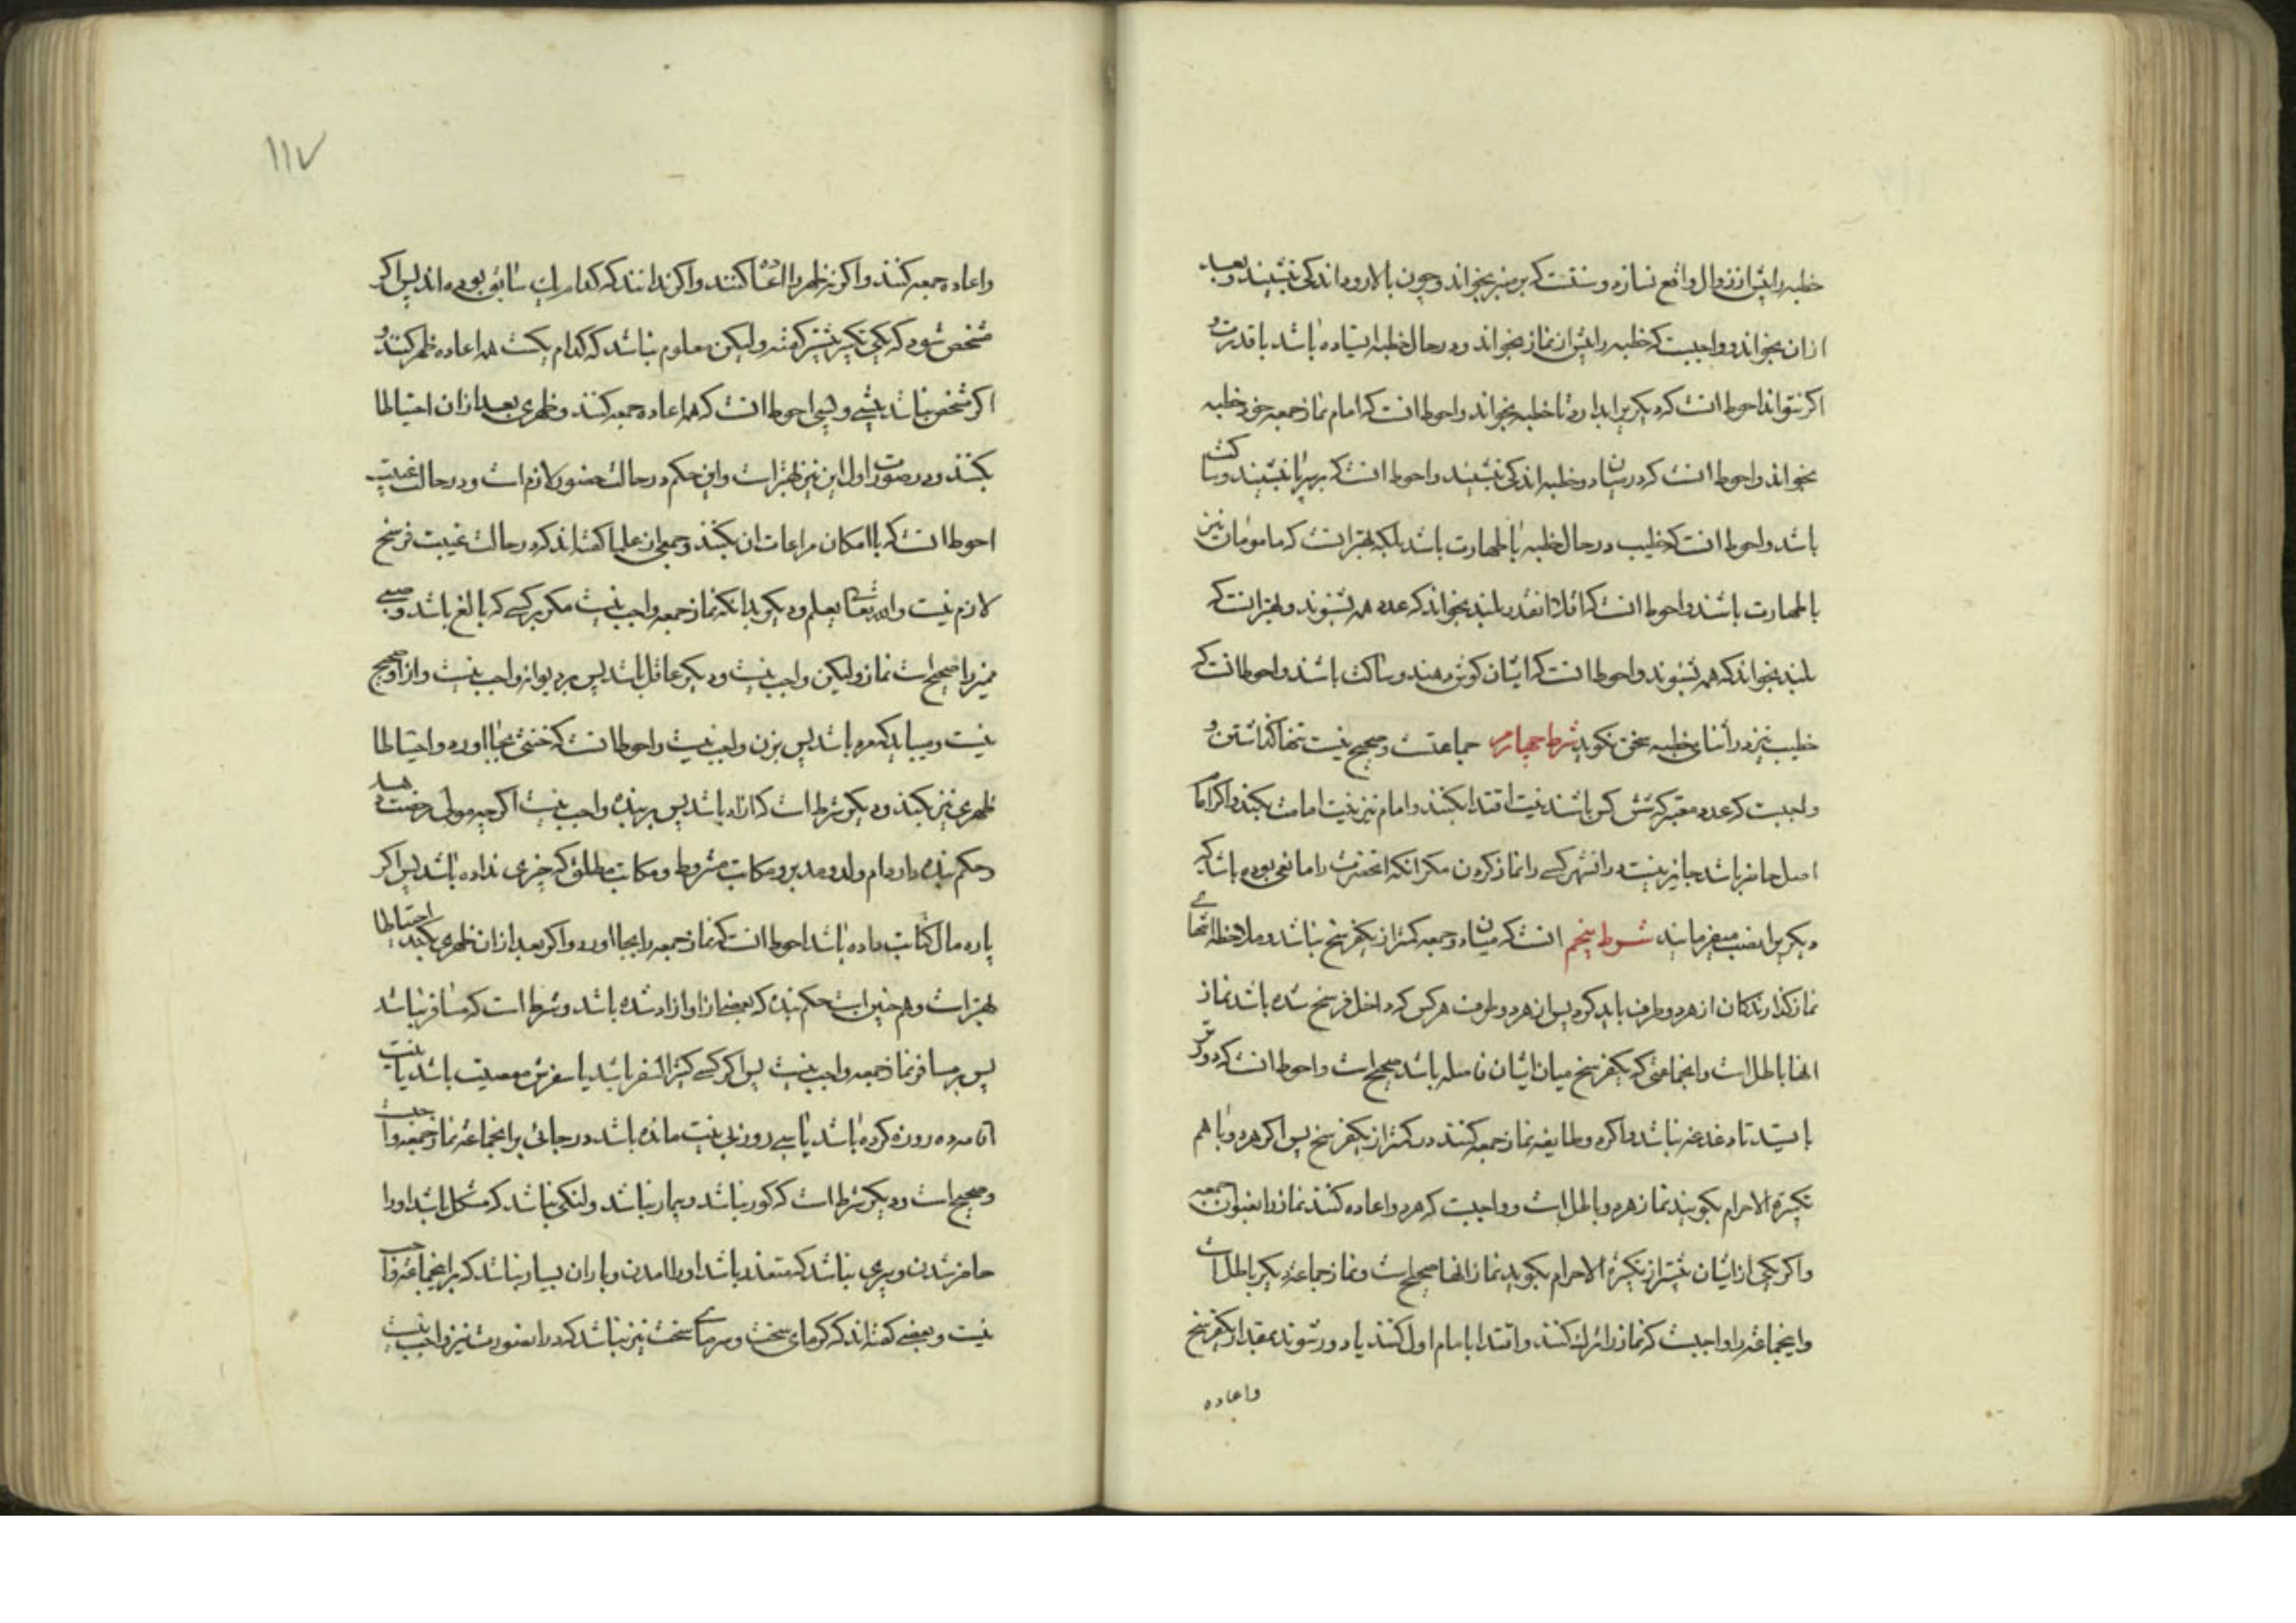 خطبه را پیش از زوال واقع نسازد و سنتست که بر منبر بخواند و چون بالا رود اندکی بنشیند و بعد
ازان بخواند و واجبست که خطبه را پیش از نماز بخواند و در حال خطبه ایستاده باشد با قدرت و
اکر نتواند احوط انست که دیکریرا بدارد تا خطبه بخواند و احوط انست که امام نماز جمعه خود خطبه
بخواند و احوط انست که در میان دو خطبه اندکی بنشیند و احوط انست که بنشیند و ساکت
باشد و احوط انست که خطیب در حال خطبه با طهارت باشد بلکه بهتر انست که مامومان نیز
با طهارت باشند و احوط انست که اقلا انقدر بلند بخواند که عدد همه بشنوند و بهتر انست که
بلند بخواند که همه بشنوند و احوط انست که ایشان کوش دهند و ساکت باشند و احوط انست که
خطیب نیز در اثنای خطبه سخن نکوید شرط چهارم جماعتست و صحیح نیست تنها کذاشتن و
واجبست که عدد معتبر که شش کس باشند نیت اقتدا بکنند و امام نیز نیت امامت بکند و اکر امام
اصل حاضر باشد جایز نیست در انشهر کسی را نماز کردن مکر انکه انحضرت را مانعی بوده باشد که
دیکریرا نصب میفرمایند شرط پنجم انست که میان دو جمعه کمتر از یکفرسخ نباشد و ملاحظه انتهای
نماز کذارندکان از هر دو طرف باید کرد پس از هر دو طرف هر کس که داخل فرسخ شده باشد نماز
انها باطل است و انجماعتی که یکفرسخ میان ایشان فاصله باشد صحیح است و احوط انست که دورتر
بایستد تا دغدغه نباشد و اکر دو طایفه نماز جمعه کنند در کمتر از یکفرسخ پس اکر هر دو با هم
تکبیرة الاحرام بکویند نماز هر دو باطل است و واجبست که هر دو اعاده کنند نماز را بعنوان جمعه
و اکر یکی از ایشان پیشتر از تکبیرة الاحرام بکوید نماز انها صحیح است و نماز جماعة دیکر باطل است
و اینجماعة را واجبست که نماز را ترک کنند و اقتدا با امام اول کنند یا دور شوند بمقدار یکفرسخ
واعاده
۱۱۷
واعاده جمعه کنند و اکر نه ظهر را اعاده کنند و اکر ندانند که کدام یک سابق بوده اند پس اکر
مشخص شود که یکی تکبیر پیشتر کفته و لیکن معلوم نباشد که کدام یکست همه اعاده ظهر کنند و
اکر مشخص نباشد پیشی و پسی احوط انست که همه اعاده جمعه کنند و ظهری بعد ازان احتیاطا
بکنند و در صورت اول این نیز بهتر است و این حکم در حالت حضور لازم است و در حالت غیبت
احوط انست که با امکان مراعات ان بکنند و جمعی از علما کفته اند که در حالت غیبت فرسخ
لازم نیست والله تعالی یعلم و دیکر بدانکه نماز جمعه واجب نیست مکر بر کسی که بالغ باشد و صبی
ممیز را صحیح است نماز و لیکن واجب نیست و دیکر عاقل باشد پس بر دیوانه واجب نیست و از او صحیح
نیست و میباید که مرد باشد پس بر زن واجب نیست و احوط انست که خنثی بجا اورد و احتیاطا
ظهری نیز بکند و دیکر شرط است که ازاد باشد پس بر بنده واجب نیست اکر چه مولی رخصت دهد
و حکم بنده دارد ام ولد و مدبر و مکاتب مشروط و مکاتب مطلق که چیزی نداده باشد پس اکر
پاره مال کتابت داده باشد احوط انست که نماز جمعه را بجا اورد و اکر بعد ازان ظهری بکند احتیاطا
بهتر است و هم چنین است حکم بنده که بعضی از او ازاد شده باشد و شرط است که مسافر نباشد
پس بر مسافر نماز جمعه واجب نیست پس اکر کسی کثیر السفر باشد یا سفرش معصیت باشد یا نیت
اقامه ده روزه کرده باشد یا سی روز بی نیت مانده باشد در جائی بر اینجماعة نماز جمعه واجبست
و صحیح است و دیکر شرط است که کور نباشد و بیمار نباشد و لنکی نباشد که مشکل باشد او را
حاضر شدن و پیری نباشد که متعذر باشد او را امدن و باران بسیار نباشد که بر اینجماعة واجب
نیست و بعضی کفته اند که کرمای سخت و سرمای سخت نیز نباشد که در اینصورت نیز واجب نیست